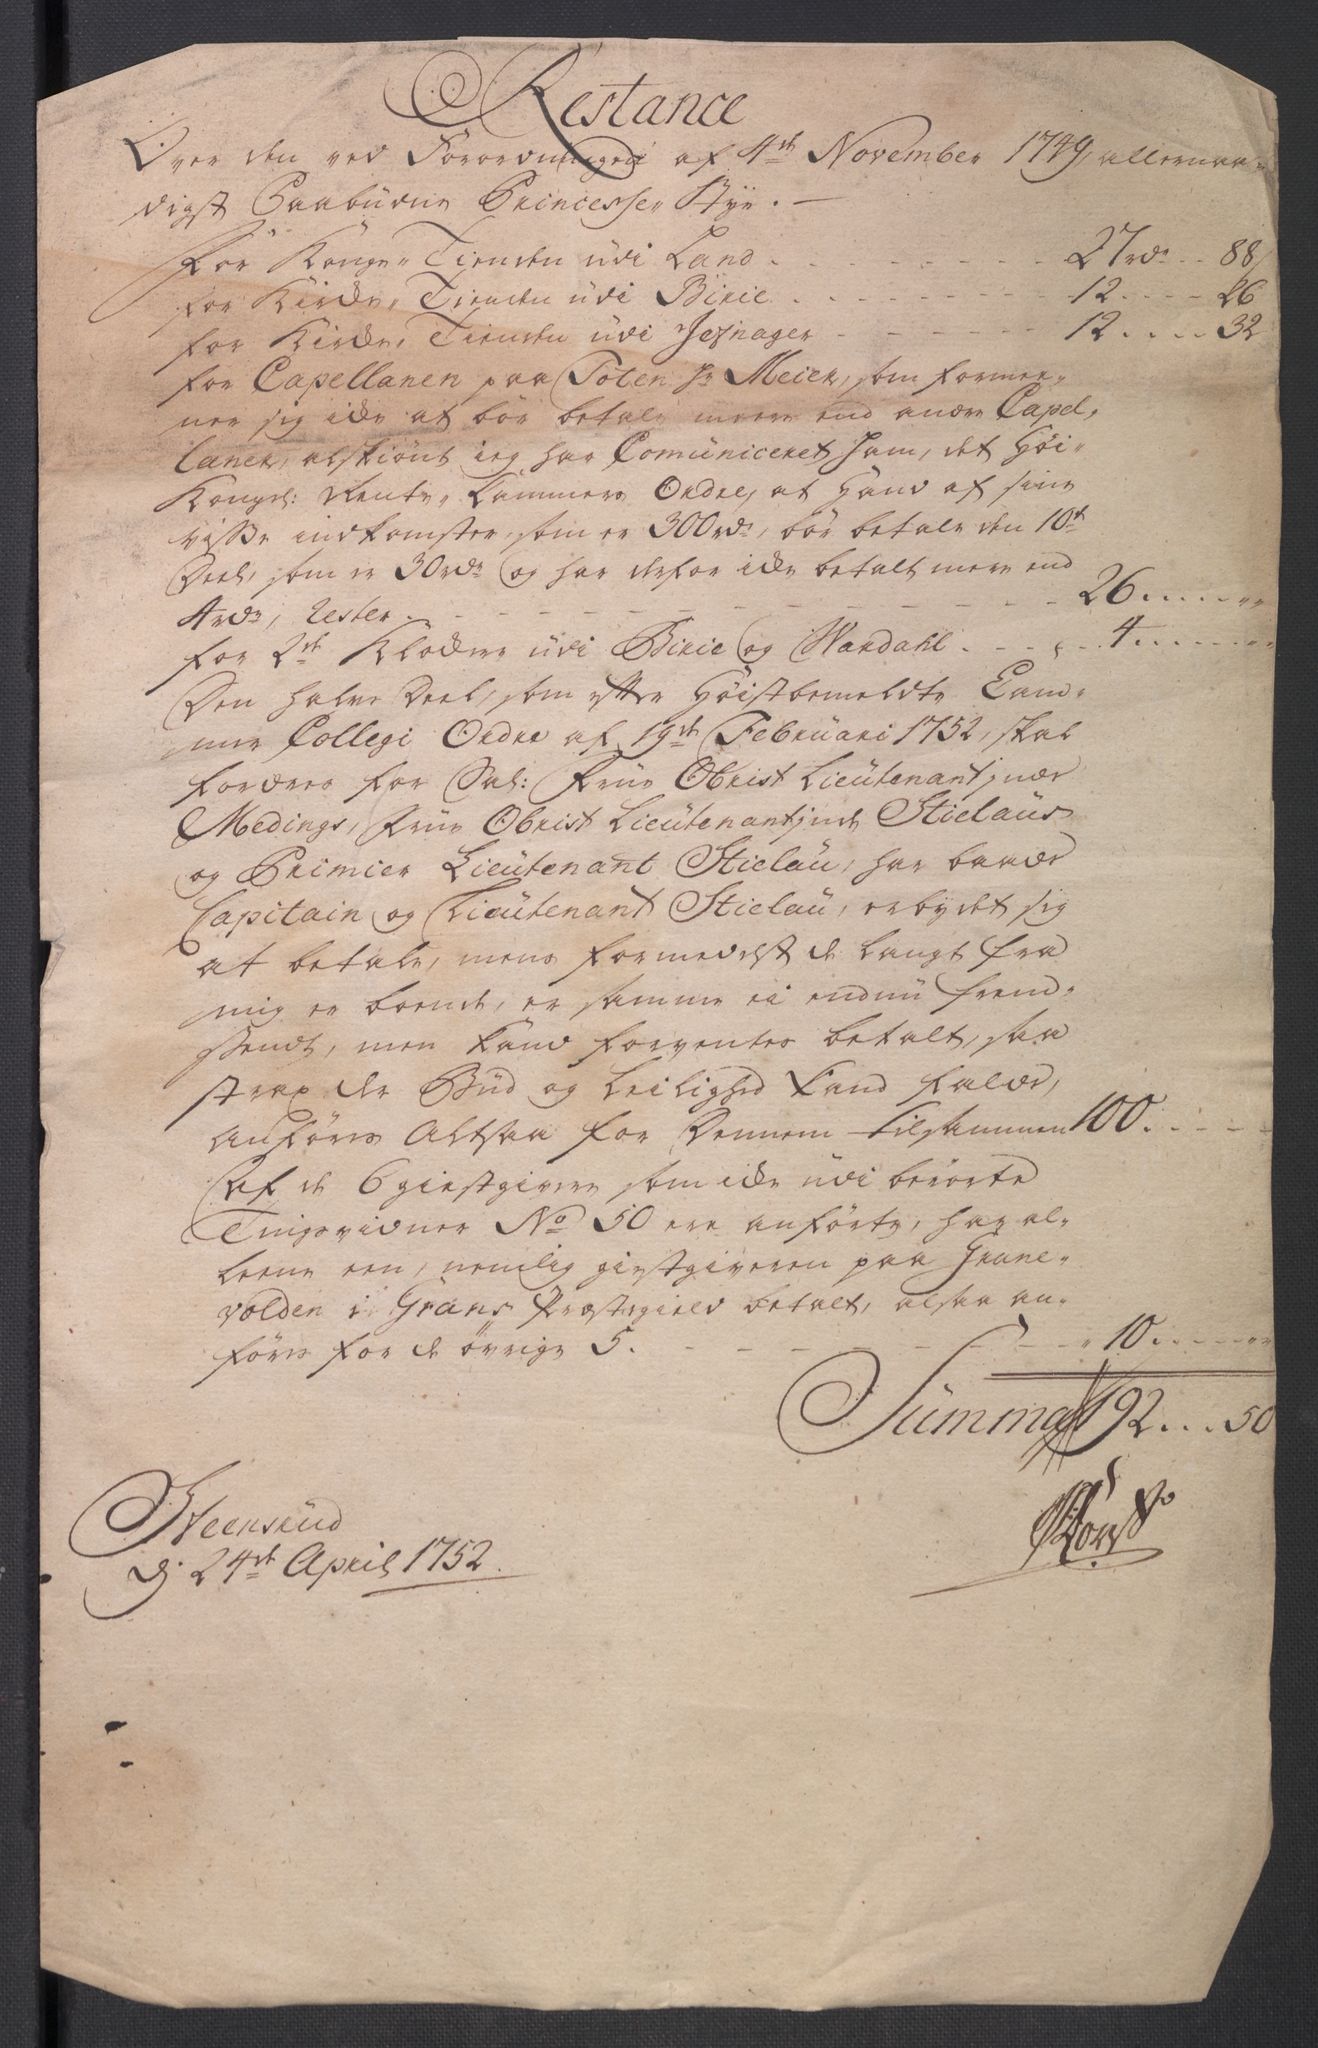 Restance
Over den ved Forordningen af 4de November 1749 allernaa-
digst Paabudne Princesse Styr. —
for Konge Tienden udi Land . . . 27 rdr . . 88
for Kirke Tienden udi Birie . . . 12 . . . 26
for Kirke Tienden udi Jefnager . . . 12 . . . 32
for Capellanen paa Toten Hr Meier, som formee-
ner sig icke at bør betale meere end andre Capel-
laner, alskiønt ieg har Comuniceret ham, det Høi-
Kongel: Rente-Cammers Ordre, at hand af sine
visse indkomster, som er 300 rdr, bør betale den 10de
Deel, som er 30 rdr og har derfor icke betalt mere end
4 rdr, rester . . . 26 . . .
for 2de Klockere udi Birie og Wardahl . . . 4 . . .
Den halve Deel, som efter Høistbemeldte Cam-
mer Collegi Ordre af 19de Februari 1752, skal
fordres for Sal: Frue Obrist Lieutenantinde
Medings, Frue Obrist Lieutenantinde Stielaus
og Primier Lieutenant Stielau, har baade
Capitain og Lieutenant Stielau, erbydet sig
at betale, mens formedelst de langt fra
mig er boende, er samme ei endnu frem-
sendt, men kand forventes betalt, saa
strax der Bud og Leilighed kand falde,
anføres Altsaa for Dennem tilsammen 100 . . .
Af de 6 giestgivere som icke udi berørte
Tingsvidner No 50 ere anførte, har al-
leene een, nemlig giestgiveren paa Grane-
volden i Grans Præstegield betalt, alsaa an-
føres for de øvrige 5. . . . 10 . . .
Summa 192 . . . 50
Steensrud
d: 24de April 1752